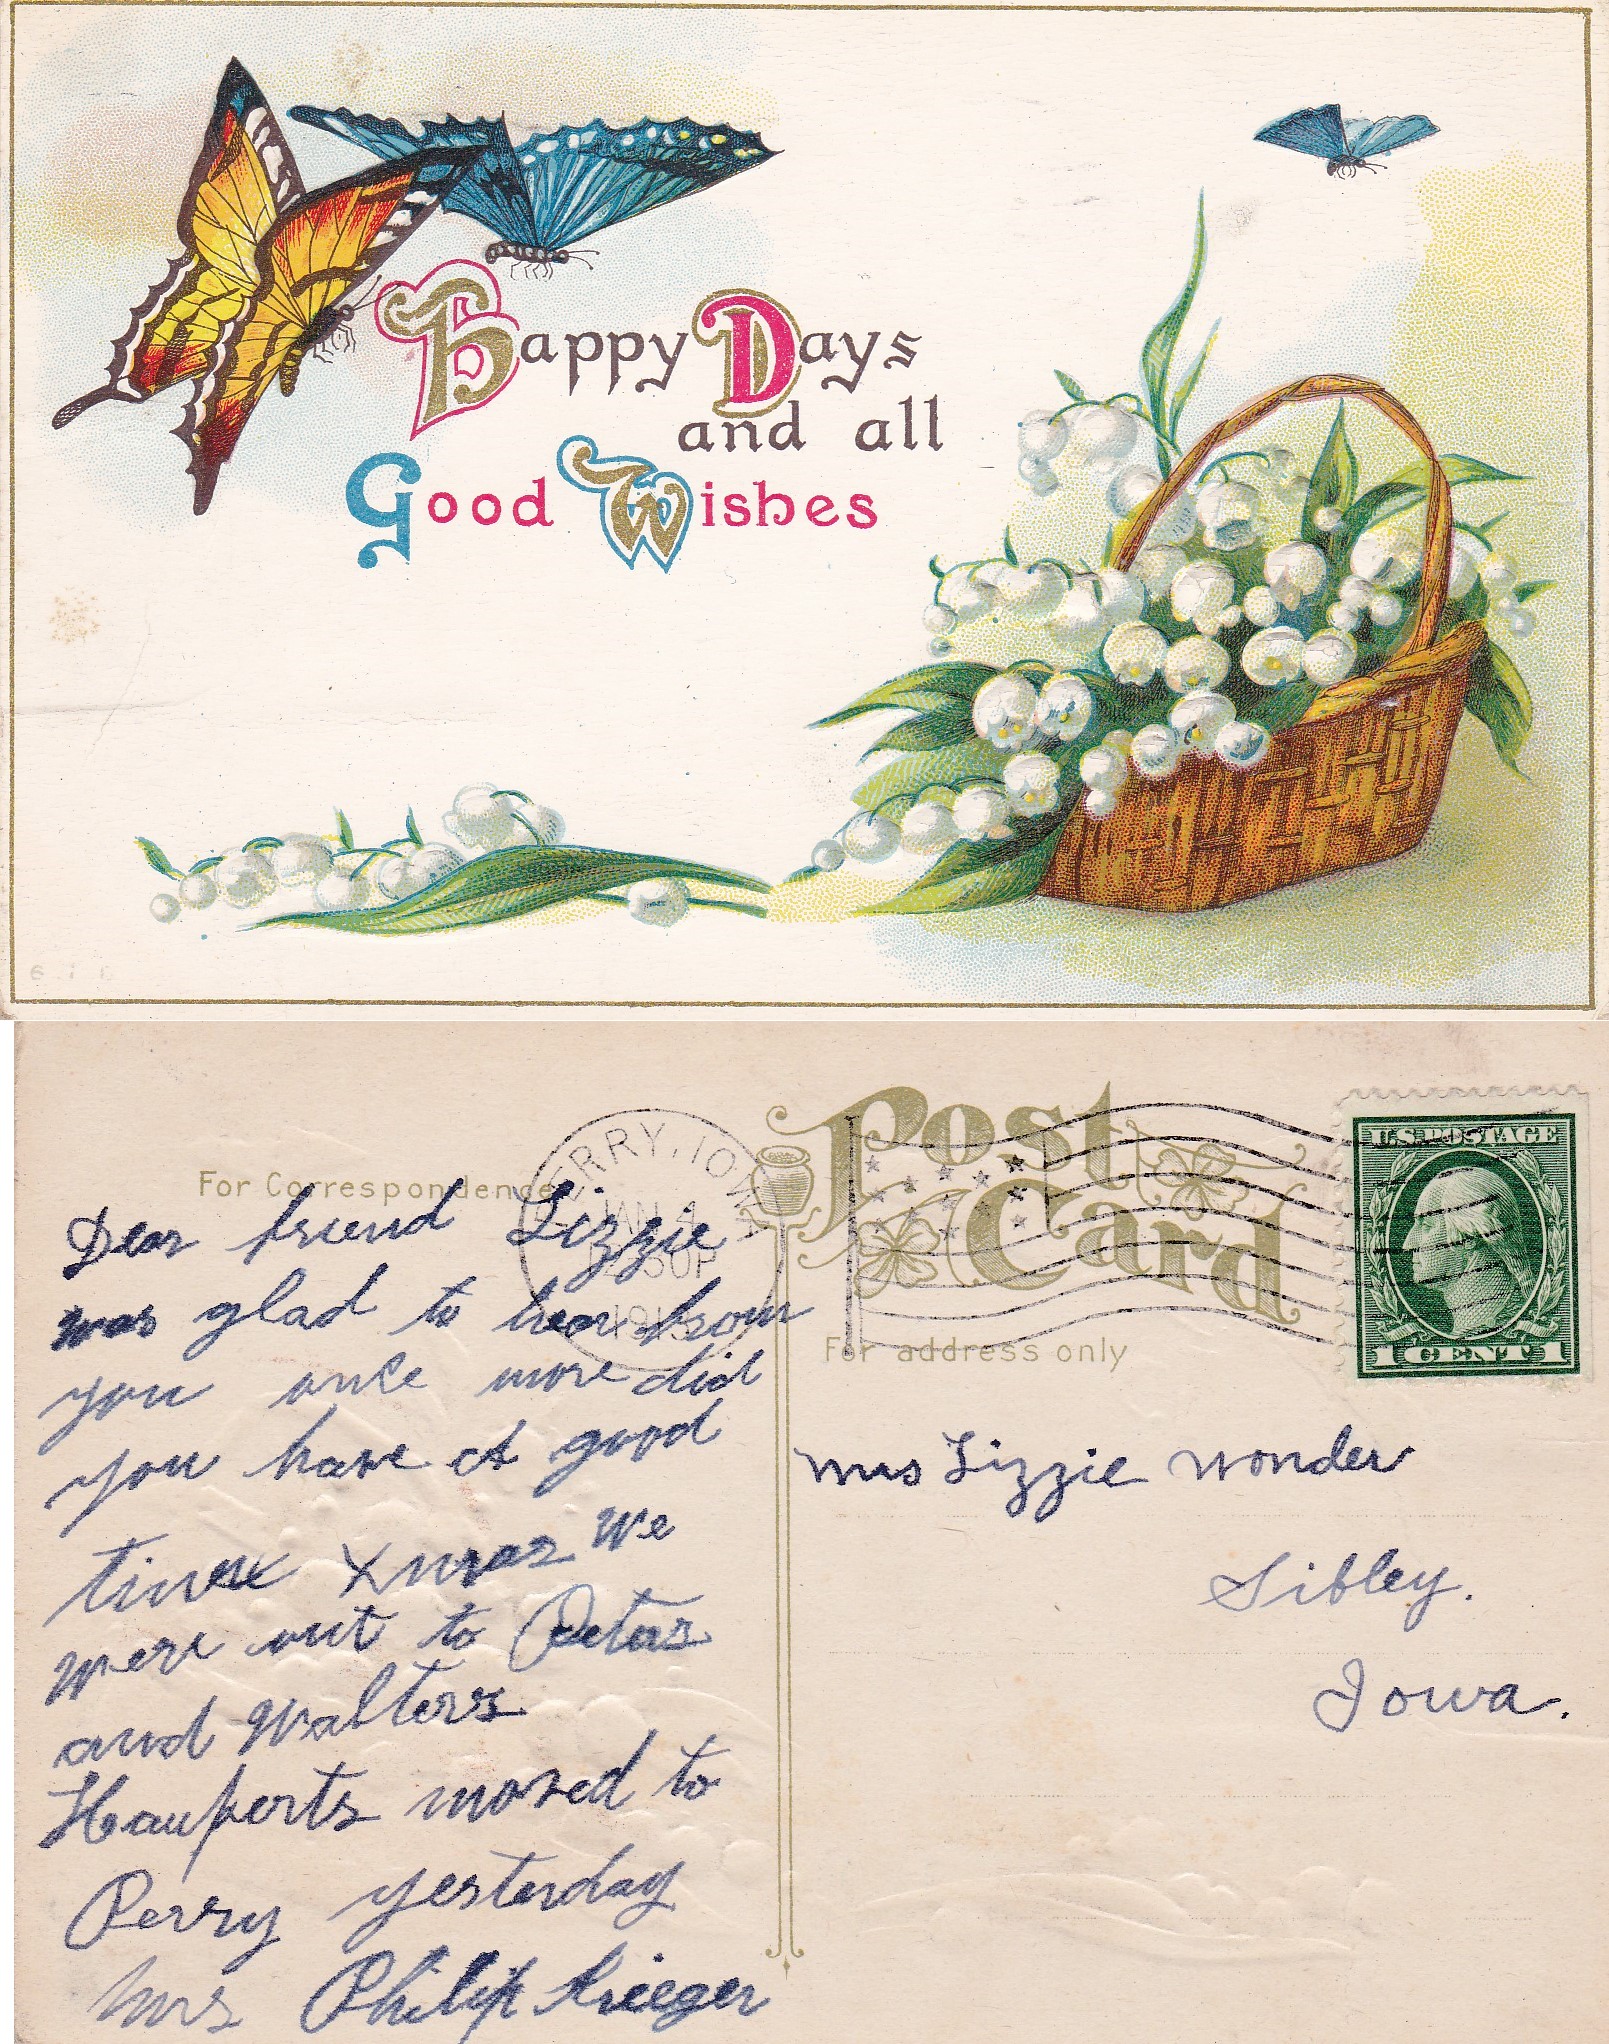 Happy Days
and all
Good Wishes
Post
Card
For Correspondence
For address only
PERRY, IOWA
JAN 4
U.S. POSTAGE
1 CENT 1
Dear friend Lizzie
was glad to hear from
you once more did
you have A good
time Xmas We
were out to Peters
and Walters
Hauperts moved to
Perry yesterday
Mrs Philip Krieger
Mrs Lizzie Wonder
Sibley.
Iowa.